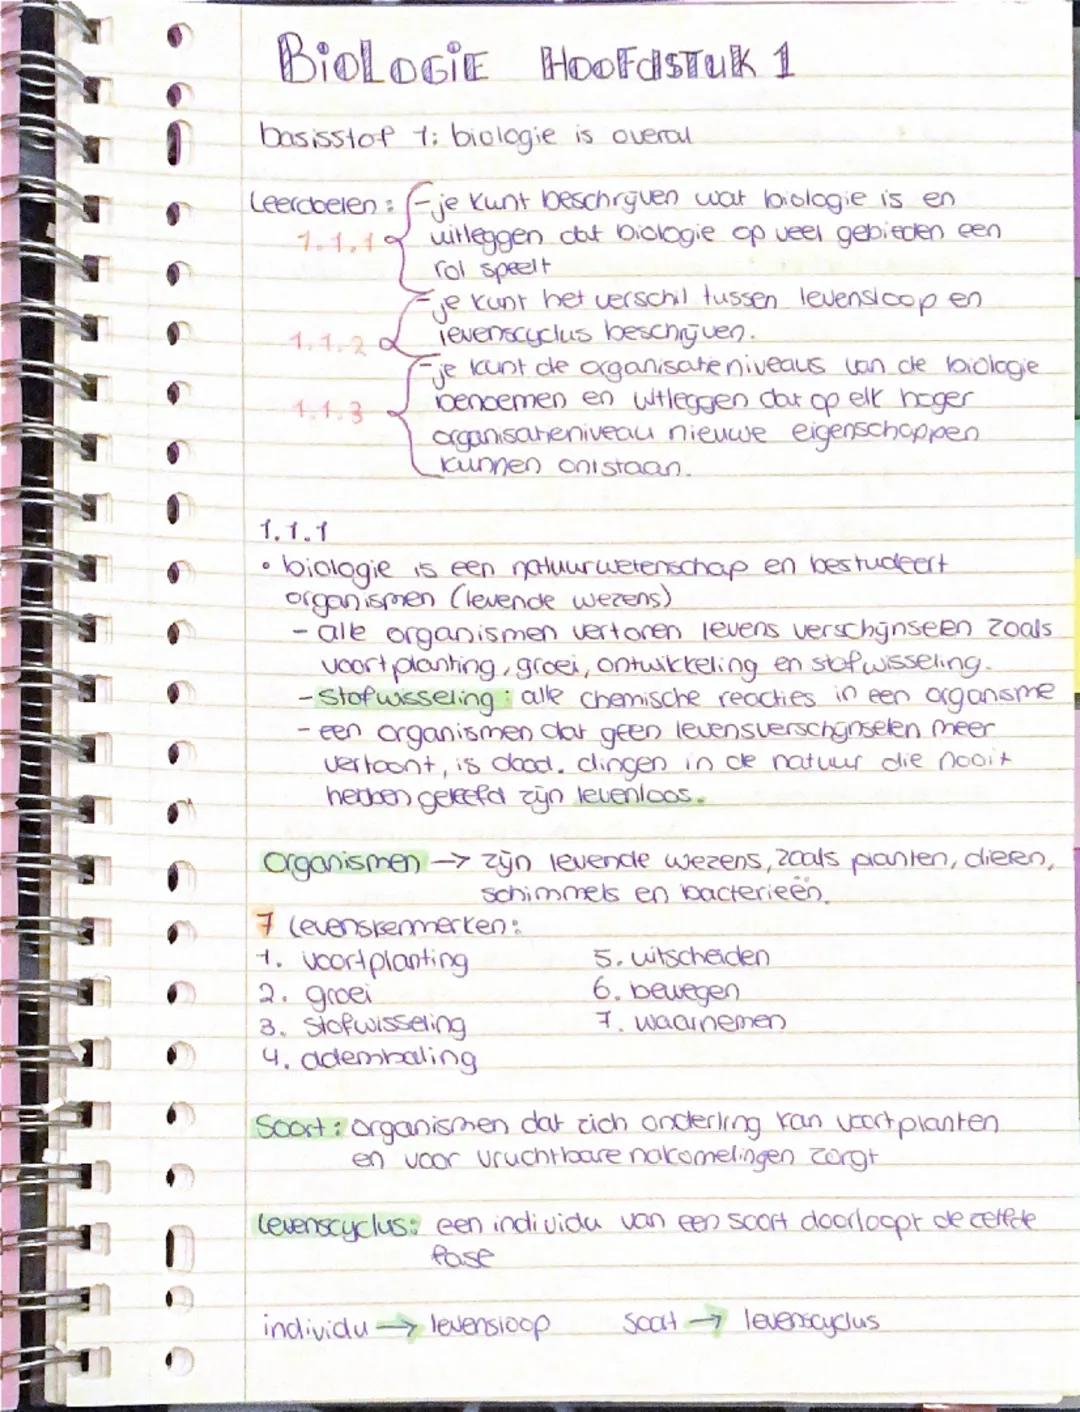 BiOLOGiE HOOFdSTUK 1
basisstof 1: biologie is overal
Leerdoelen: - je kunt beschrijven wat biologie is en
1.1.1 uitleggen dat biologie op veel gebieden een
rol speelt
- je kunt het verschil tussen levensloop en
1.1.2 levenscyclus beschrijven.
- je kunt de organisatieniveaus van de biologie
1.1.3 benoemen en uitleggen dat op elk hoger
organisatieniveau nieuwe eigenschappen
kunnen ontstaan.
1.1.1
• biologie is een natuurwetenschap en bestudeert
organismen (levende wezens)
- alle organismen vertonen levens verschijnseen zoals
voortplanting, groei, ontwikkeling en stofwisseling.
- Stofwisseling: alle chemische reacties in een organisme
- een organismen dat geen levensverschijnselen meer
vertoont, is dood. dingen in de natuur die nooit
hebben geleefd zijn levenloos.
Organismen → zijn levende wezens, zoals planten, dieren,
schimmels en bacterieën.
7 levenskenmerken:
1. voortplanting 5. uitscheiden
2. groei 6. bewegen
3. Stofwisseling 7. waarnemen
4. ademhaling
Soort: organismen dat zich onderling kan voortplanten
en voor vruchtbare nakomelingen zorgt
levenscyclus: een individu van een soort doorloopt dezelfde
fase
individu → levensloop Soort → levenscyclus